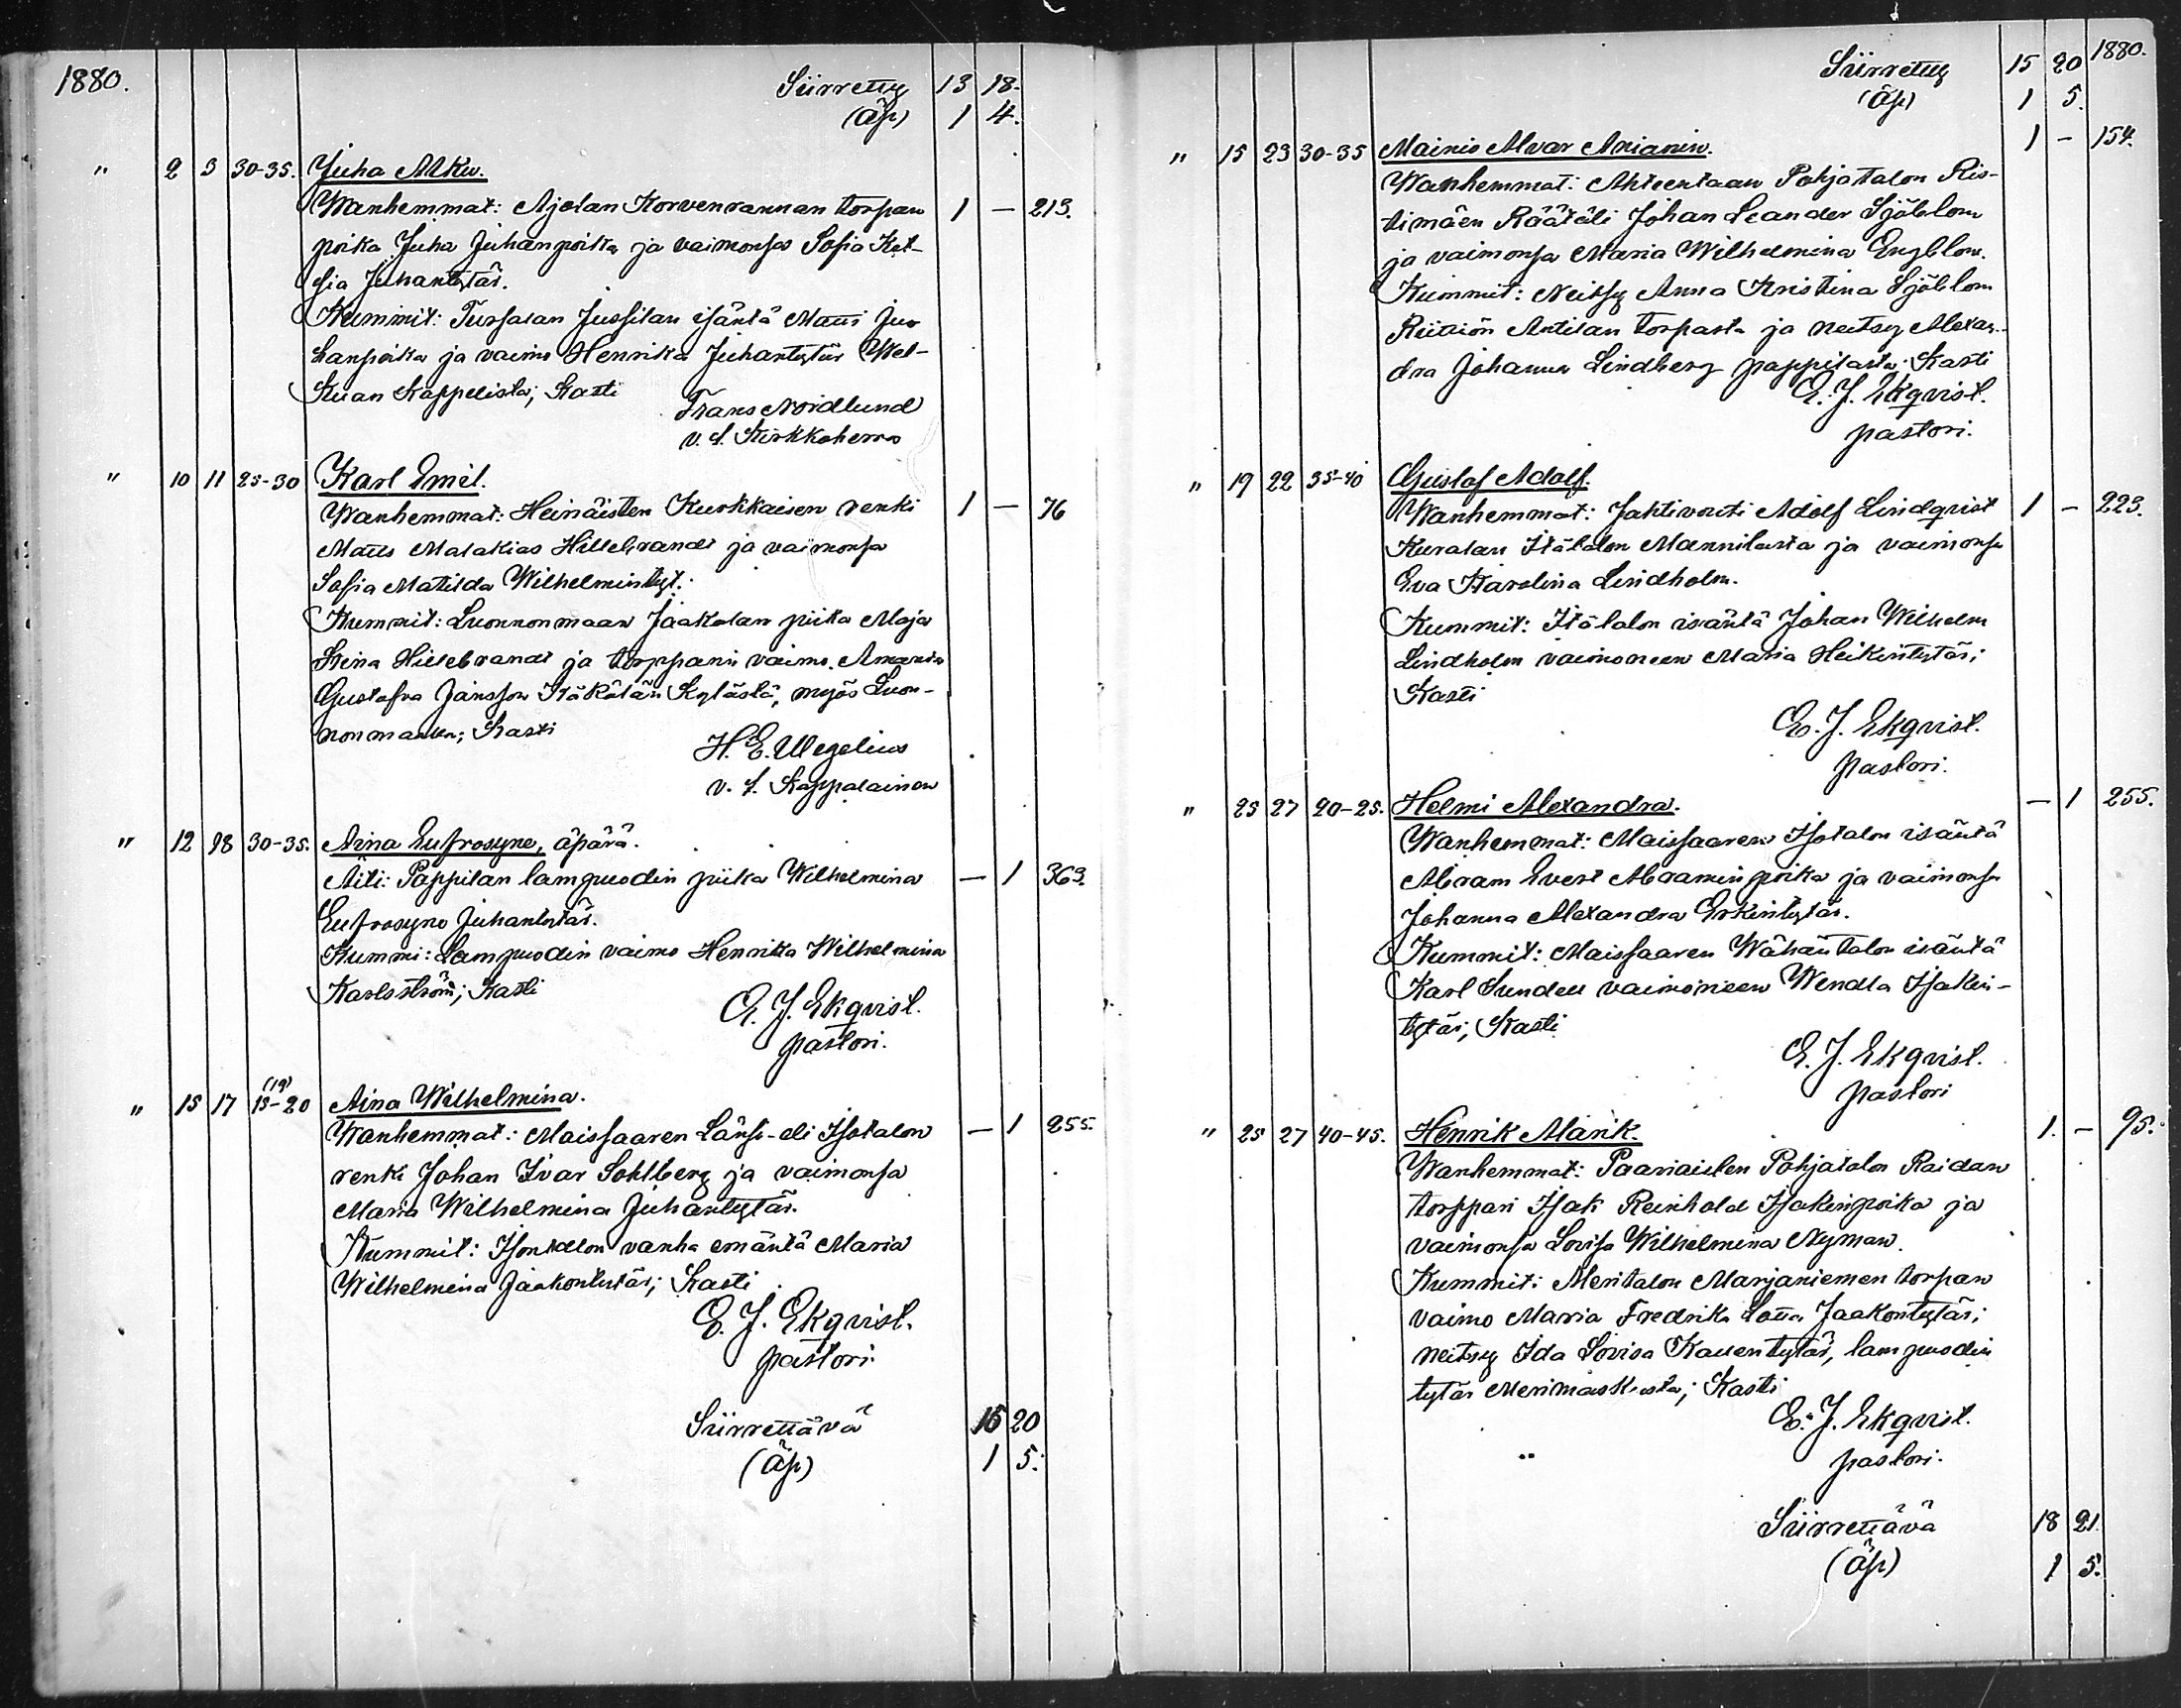 1880. Siirretty 13 18.
(Äp) 1 4.
" 2 3 30-35. Juha
Wanhemmat: Ajolan Korvenrannan torpan 1 — 213.
poika Juha Juhanpoika ja vaimonsa Sofia Ket-
sia Juhantytär.
Kummit: Tursalan Jussilan isäntä Matti Ju-
hanpoika ja vaimo Henrika Juhantytär Wel-
kuan Kappelista; Kasti
Frans Nordlund
v. t. Kirkkoherra
" 10 11 25-30 Karl Emil.
Wanhemmat: Heinäisten Kurkkaisen renki 1 — 76
Matts Malakias Hillebrandt ja vaimonsa
Sofia Matilda Wilhelmintyt.:
Kummit: Luonnonmaan Jaakolan piika Maja
Stina Hillebrandt ja torpparin vaimo Amanda
Gustafva Jansson Käkölän Kylästä, myös Luon-
nonmaalta; Kasti
H. E. Wegelius
v. t. Kappalainen
" 12 18 30-35. Aina Eufrosyne, äpärä.
Äiti: Pappilan lampuodin piika Wilhelmina — 1 363.
Eufrosyne Juhantytär.
Kummi: Lampuodin vaimo Henrika Wilhelmina
Karlsström; Kasti
E. J. Ekqvist.
pastori.
(19)
" 15 17 15-20 Aina Wilhelmina.
Wanhemmat: Maissaaren Länsi- eli Isotalon — 1 255.
renki Johan Ivar Sohlberg ja vaimonsa
Maria Wilhelmina Juhantytär.
Kummit: Isontalon vanha emäntä Maria
Wilhelmina Jaakontytär; Kasti
E. J. Ekqvist.
pastori.
Siirrettävä 15 20
(Äp) 1 5.
Siirretty 15 20 1880.
(Äp) 1 5.
" 15 23 30-35 Mainio Alvar Anianin. 1 — 154.
Wanhemmat: Ahteentaan Pohjatalon Ris-
timäen Räätäli Johan Leander Sjöblom
ja vaimonsa Maria Wilhelmina Engblom.
Kummit: Neitsy Anna Kristina Sjöblom
Riittiön Antilan torpasta ja neitsy Alexan-
dra Johanna Lindberg pappilasta; Kasti
E. J. Ekqvist.
pastori.
" 19 22 35-40 Gustaf Adolf.
Wanhemmat: Jahtivouti Adolf Lindqvist 1 — 223.
Kuralan Itätalon Mannilasta ja vaimonsa
Eva Karolina Lindholm.
Kummit: Itätalon isäntä Johan Wilhelm
Lindholm vaimoneen Maria Heikintytär;
Kasti
E. J. Ekqvist.
pastori.
" 25 27 20-25. Helmi Alexandra. — 1 255.
Wanhemmat: Maissaaren Isotalon isäntä
Abram Evert Abraminpoika ja vaimonsa
Johanna Alexandra Erkintytär.
Kummit: Maissaaren Wähäntalon isäntä
Karl Sundell vaimoneen Wendla Isakin-
tytär; Kasti
E. J. Ekqvist.
pastori
" 25 27 40-45. Henrik Alarik. 1. — 95.
Wanhemmat: Paaniaisten Pohjatalon Raidan
torppari Isak Reinhold Isakinpoika ja
vaimonsa Lovisa Wilhelmina Nyman.
Kummit: Meritalon Marjaniemen torpan
vaimo Maria Fredrika Lotta Jaakontytär;
neitsy Ida Lovisa Kallentytär, lampuodin
tytär Merimaskusta; Kasti
E. J. Ekqvist.
pastori.
Siirrettävä 18 21.
(Äp) 1 5.